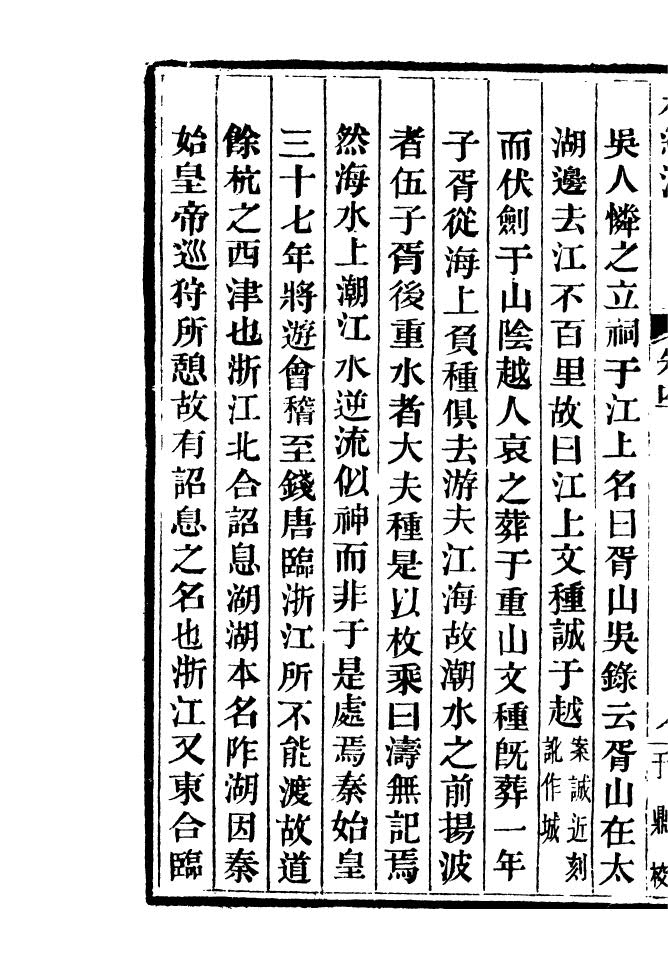 吳人憐之立祠于江上名曰胥山吳錄云胥山在太
湖邊去江不百里故曰江上文種誠于越案誠近刻訛作城
而伏劍于山陰越人哀之葬于重山文種既葬一年
子胥從海上負種俱去游夫江海故潮水之前揚波
者伍子胥後重水者大夫種是以枚乘曰濤無記焉
然海水上潮江水逆流似神而非于是處焉秦始皇
三十七年將遊會稽至錢唐臨浙江所不能渡故道
餘杭之西津也浙江北合詔息湖湖本名阼湖因秦
始皇帝巡狩所憩故有詔息之名也浙江又東合臨